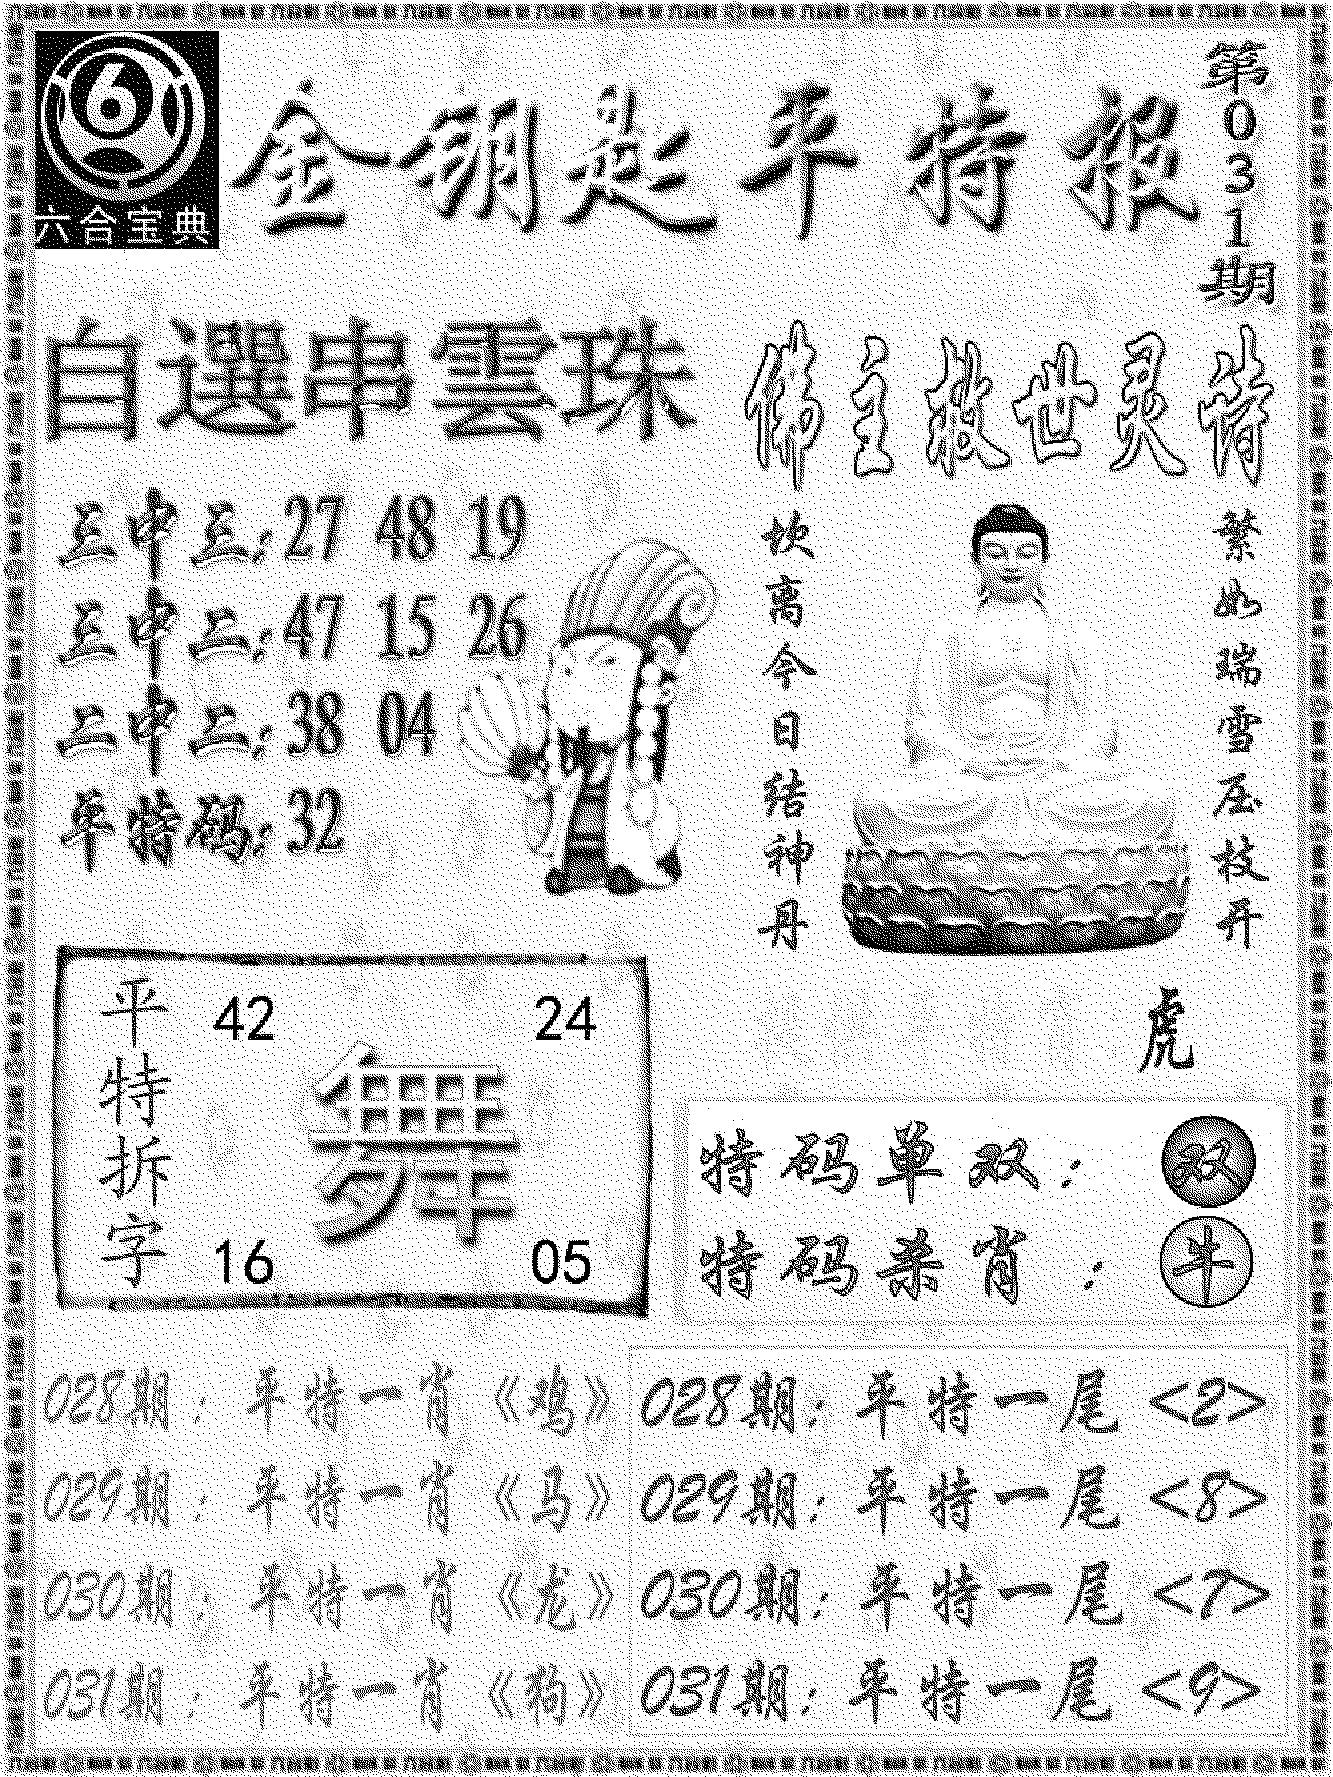 6
六合宝典
金钥匙平特报
第031期
自選串雲珠
三中三:27 48 19
三中二:47 15 26
二中二:38 04
平特码:32
佛主救世灵诗
繁如瑞雪压枝开
坎离今日结神丹
虎
平特拆字
42 24
舞
16 05
特码单双:双
特码杀肖:牛
028期:平特一肖《鸡》
029期:平特一肖《马》
030期:平特一肖《龙》
031期:平特一肖《狗》
028期:平特一尾<2>
029期:平特一尾<8>
030期:平特一尾<7>
031期:平特一尾<9>